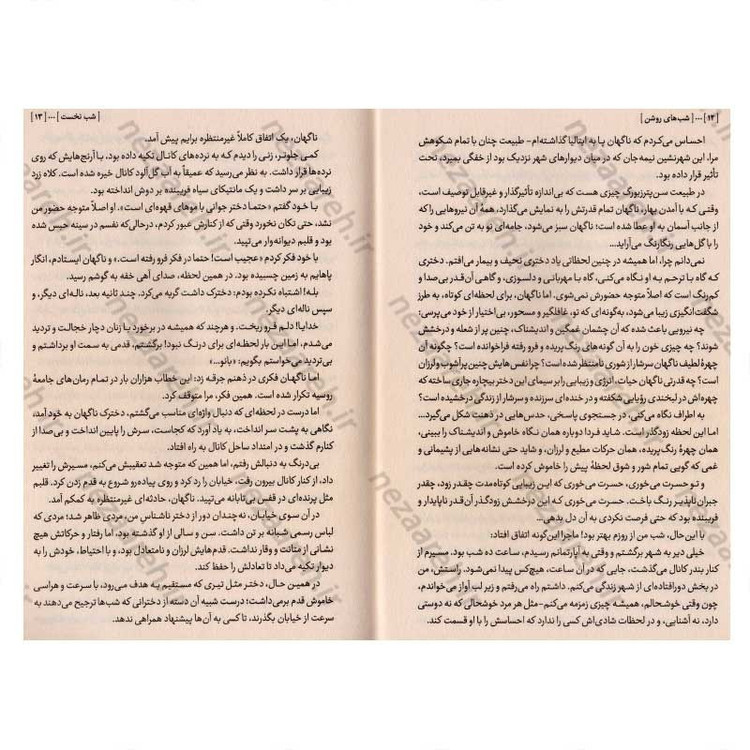 [ ۱۲ ] ... [ شب‌های روشن ]
احساس می‌کردم که ناگهان پا به ایتالیا گذاشته‌ام- طبیعت چنان با تمام شکوهش
مرا، این شهرنشین نیمه‌جان که در میان دیوارهای شهر نزدیک بود از خفگی بمیرد، تحت
تأثیر قرار داده بود.
در طبیعت سن‌پترزبورگ چیزی هست که بی‌اندازه تأثیرگذار و غیرقابل توصیف است،
وقتی که با آمدن بهار، ناگهان تمام قدرتش را به نمایش می‌گذارد، همهٔ آن نیروهایی را که
از جانب آسمان به او عطا شده است؛ ناگهان سبز می‌شود، جامه‌ای نو به تن می‌کند و خود
را با گل‌هایی رنگارنگ می‌آراید...
نمی‌دانم چرا، اما همیشه در چنین لحظاتی یاد دختری نحیف و بیمار می‌افتم. دختری
که گاه با ترحم به او نگاه می‌کنی، گاه با مهربانی و دلسوزی، و گاهی آن‌قدر بی‌صدا و
کم‌رنگ است که اصلاً متوجه حضورش نمی‌شوی. اما ناگهان، برای لحظه‌ای کوتاه، به طرز
شگفت‌انگیزی زیبا می‌شود، به‌گونه‌ای که تو، غافلگیر و مسحور، بی‌اختیار از خود می‌پرسی:
چه نیرویی باعث شده که آن چشمان غمگین و اندیشناک، چنین پر از شعله و درخشش
شوند؟ چه چیزی خون را به آن گونه‌های رنگ‌پریده و فرو رفته فراخوانده است؟ چگونه آن
چهرهٔ لطیف ناگهان سرشار از شوری نامنتظر شده است؟ چرا نفس‌هایش چنین پرآشوب و لرزان
است؟ چه قدرتی ناگهان حیات، انرژی و زیبایی را بر سیمای این دختر بیچاره جاری ساخته که
چهره‌اش در لبخندی رؤیایی شکفته و در خنده‌ای سرزنده و سرشار از زندگی درخشیده است؟
به اطراف نگاه می‌کنی، در جستجوی پاسخی، حدس‌هایی در ذهنت شکل می‌گیرد...
اما این لحظه زودگذر است. شاید فردا دوباره همان نگاه خاموش و اندیشناک را ببینی،
همان چهرهٔ رنگ‌پریده، همان حرکات مطیع و لرزان، و شاید حتی نشانه‌هایی از پشیمانی و
غمی که گویی تمام شور و شوق لحظهٔ پیش را خاموش کرده است.
و تو حسرت می‌خوری، حسرت می‌خوری که این زیبایی کوتاه‌مدت چقدر زود، چقدر
جبران ناپذیر رنگ باخت. حسرت می‌خوری که این درخشش زودگذر آن‌قدر ناپایدار و
فریبنده بود که حتی فرصت نکردی به آن دل بدهی...
با این حال، شب من از روزم بهتر بود! ماجرا این‌گونه اتفاق افتاد:
خیلی دیر به شهر برگشتم و وقتی به آپارتمانم رسیدم، ساعت ده شب بود. مسیرم از
کنار بندر کانال می‌گذشت، جایی که در آن ساعت، هیچ‌کس پیدا نمی‌شود. راستش، من
در بخش دورافتاده‌ای از شهر زندگی می‌کنم. داشتم راه می‌رفتم و زیر لب آواز می‌خواندم،
چون وقتی خوشحالم، همیشه چیزی زمزمه می‌کنم-مثل هر مرد خوشحالی که نه دوستی
دارد، نه آشنایی، و در لحظات شادی‌اش کسی را ندارد که احساسش را با او قسمت کند.
[ شب نخست ] ... [ ۱۳ ]
ناگهان، یک اتفاق کاملاً غیرمنتظره برایم پیش آمد.
کمی جلوتر، زنی را دیدم که به نرده‌های کانال تکیه داده بود، با آرنج‌هایش که روی
نرده‌ها قرار داشت. به نظر می‌رسید که عمیقاً به آب گل‌آلود کانال خیره شده است. کلاه زرد
زیبایی بر سر داشت و یک مانتیکای سیاه فریبنده بر دوش انداخته بود.
با خود گفتم «حتما دختر جوانی با موهای قهوه‌ای است». او اصلاً متوجه حضور من
نشد، حتی تکان نخورد وقتی که از کنارش عبور کردم، درحالی‌که نفسم در سینه حبس شده
بود و قلبم دیوانه‌وار می‌تپید.
با خود فکر کردم «عجیب است! حتما در فکر فرو رفته است.» و ناگهان ایستادم، انگار
پاهایم به زمین چسبیده بود. در همین لحظه، صدای آهی خفه به گوشم رسید.
بله! اشتباه نکرده بودم: دخترک داشت گریه می‌کرد. چند ثانیه بعد، ناله‌ای دیگر، و
سپس ناله‌ای دیگر.
خدایا! دلم فرو ریخت. و هرچند که همیشه در برخورد با زنان دچار خجالت و تردید
می‌شدم، اما این بار لحظه‌ای برای درنگ نبود! برگشتم، قدمی به سمت او برداشتم و
بی‌تردید می‌خواستم بگویم: «بانو...»
اما ناگهان فکری در ذهنم جرقه زد: این خطاب هزاران بار در تمام رمان‌های جامعهٔ
روسیه تکرار شده است. همین فکر، مرا متوقف کرد.
اما درست در لحظه‌ای که دنبال واژه‌ای مناسب می‌گشتم، دخترک ناگهان به خود آمد،
نگاهی به پشت سر انداخت، به یاد آورد که کجاست، سرش را پایین انداخت و بی‌صدا از
کنارم گذشت و در امتداد ساحل کانال به راه افتاد.
بی‌درنگ به دنبالش رفتم، اما همین که متوجه شد تعقیبش می‌کنم، مسیرش را تغییر
داد، از کنار کانال بیرون رفت، خیابان را رد کرد و روی پیاده‌رو شروع به قدم زدن کرد. قلبم
مثل پرنده‌ای در قفس بی‌تابانه می‌تپید. ناگهان، حادثه‌ای غیرمنتظره به کمکم آمد.
در آن سوی خیابان، نه‌چندان دور از دختر ناشناسِ من، مردی ظاهر شد؛ مردی که
لباس رسمی شبانه بر تن داشت. سن و سالی از او گذشته بود، اما رفتار و حرکاتش هیچ
نشانی از متانت و وقار نداشت. قدم‌هایش لرزان و نامتعادل بود، و با احتیاط، خودش را به
دیوار تکیه می‌داد تا تعادلش را حفظ کند.
در همین حال، دختر مثل تیری که مستقیم به هدف می‌رود، با سرعت و هراسی
خاموش قدم برمی‌داشت؛ درست شبیه آن دسته از دخترانی که شب‌ها ترجیح می‌دهند به
سرعت از خیابان بگذرند، تا کسی به آن‌ها پیشنهاد همراهی ندهد.
nezaareh.ir